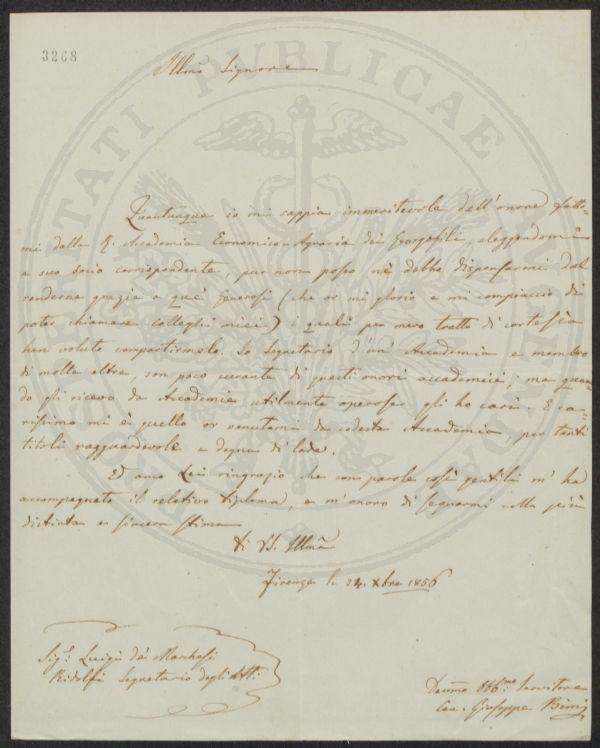 3268
Illmo Signore
Quantunque io mi sappia immeritevole dell'onore fatto-
mi dalla R. Accademia Economico-Agraria dei Georgofili, eleggendomi
a suo socio corrispondente, pur non posso nè debbo dispensarmi dal
renderne grazie a que' generosi (che or mi glorio e mi compiaccio di
poter chiamare colleghi miei) i quali per mero tratto di cortesia
han voluto compartirmelo. Io Segretario d'un' Accademia e membro
di molte altre, son poco curante di questi onori accademici; ma quan-
do gli ricevo da Accademie utilmente operose gli ho cari. E ca-
rissimo mi è quello or venutomi da codesta Accademia, per tanti
titoli ragguardevole e degna di lode.
Ed anco Lei ringrazio che con parole così gentili m' ha
accompagnato il relativo Diploma, e m' onoro di segnarmi colla più
distinta e sincera stima
Di V. S. Illma
Firenze li 24. Xbre 1856
Sigr. Luigi de' Marchesi
Ridolfi Segretario degli Atti
Devmo Obbmo Servitore
Giuseppe
PROSPERITATI PUBLICAE AUGENDAE